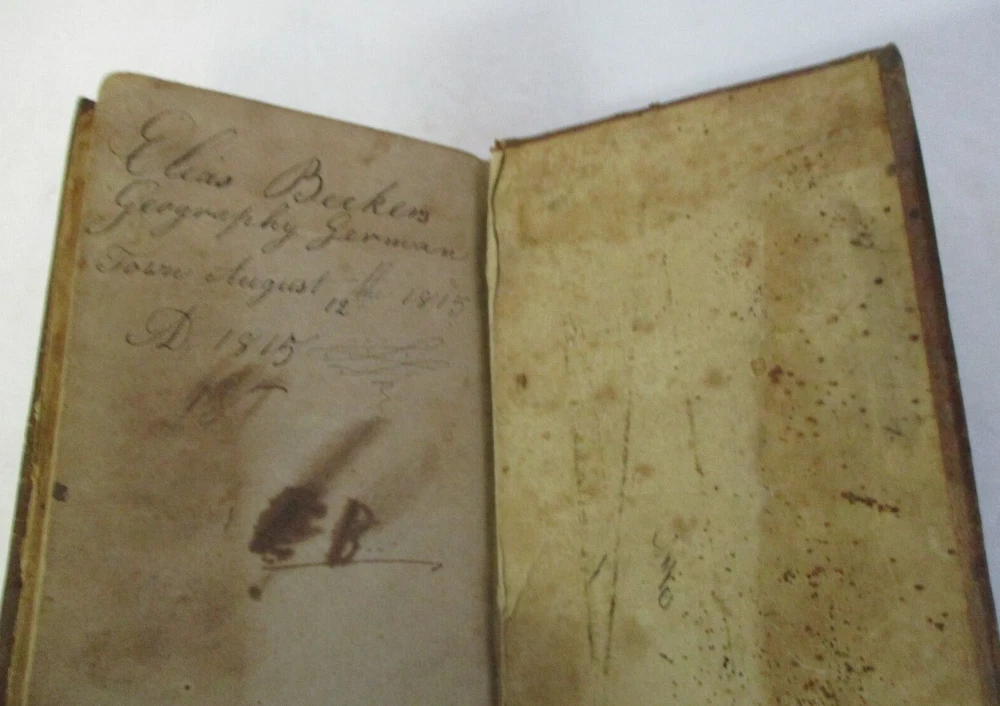 Elias Beekers
Geography German
Town August 12th 1815
AD 1815
EB